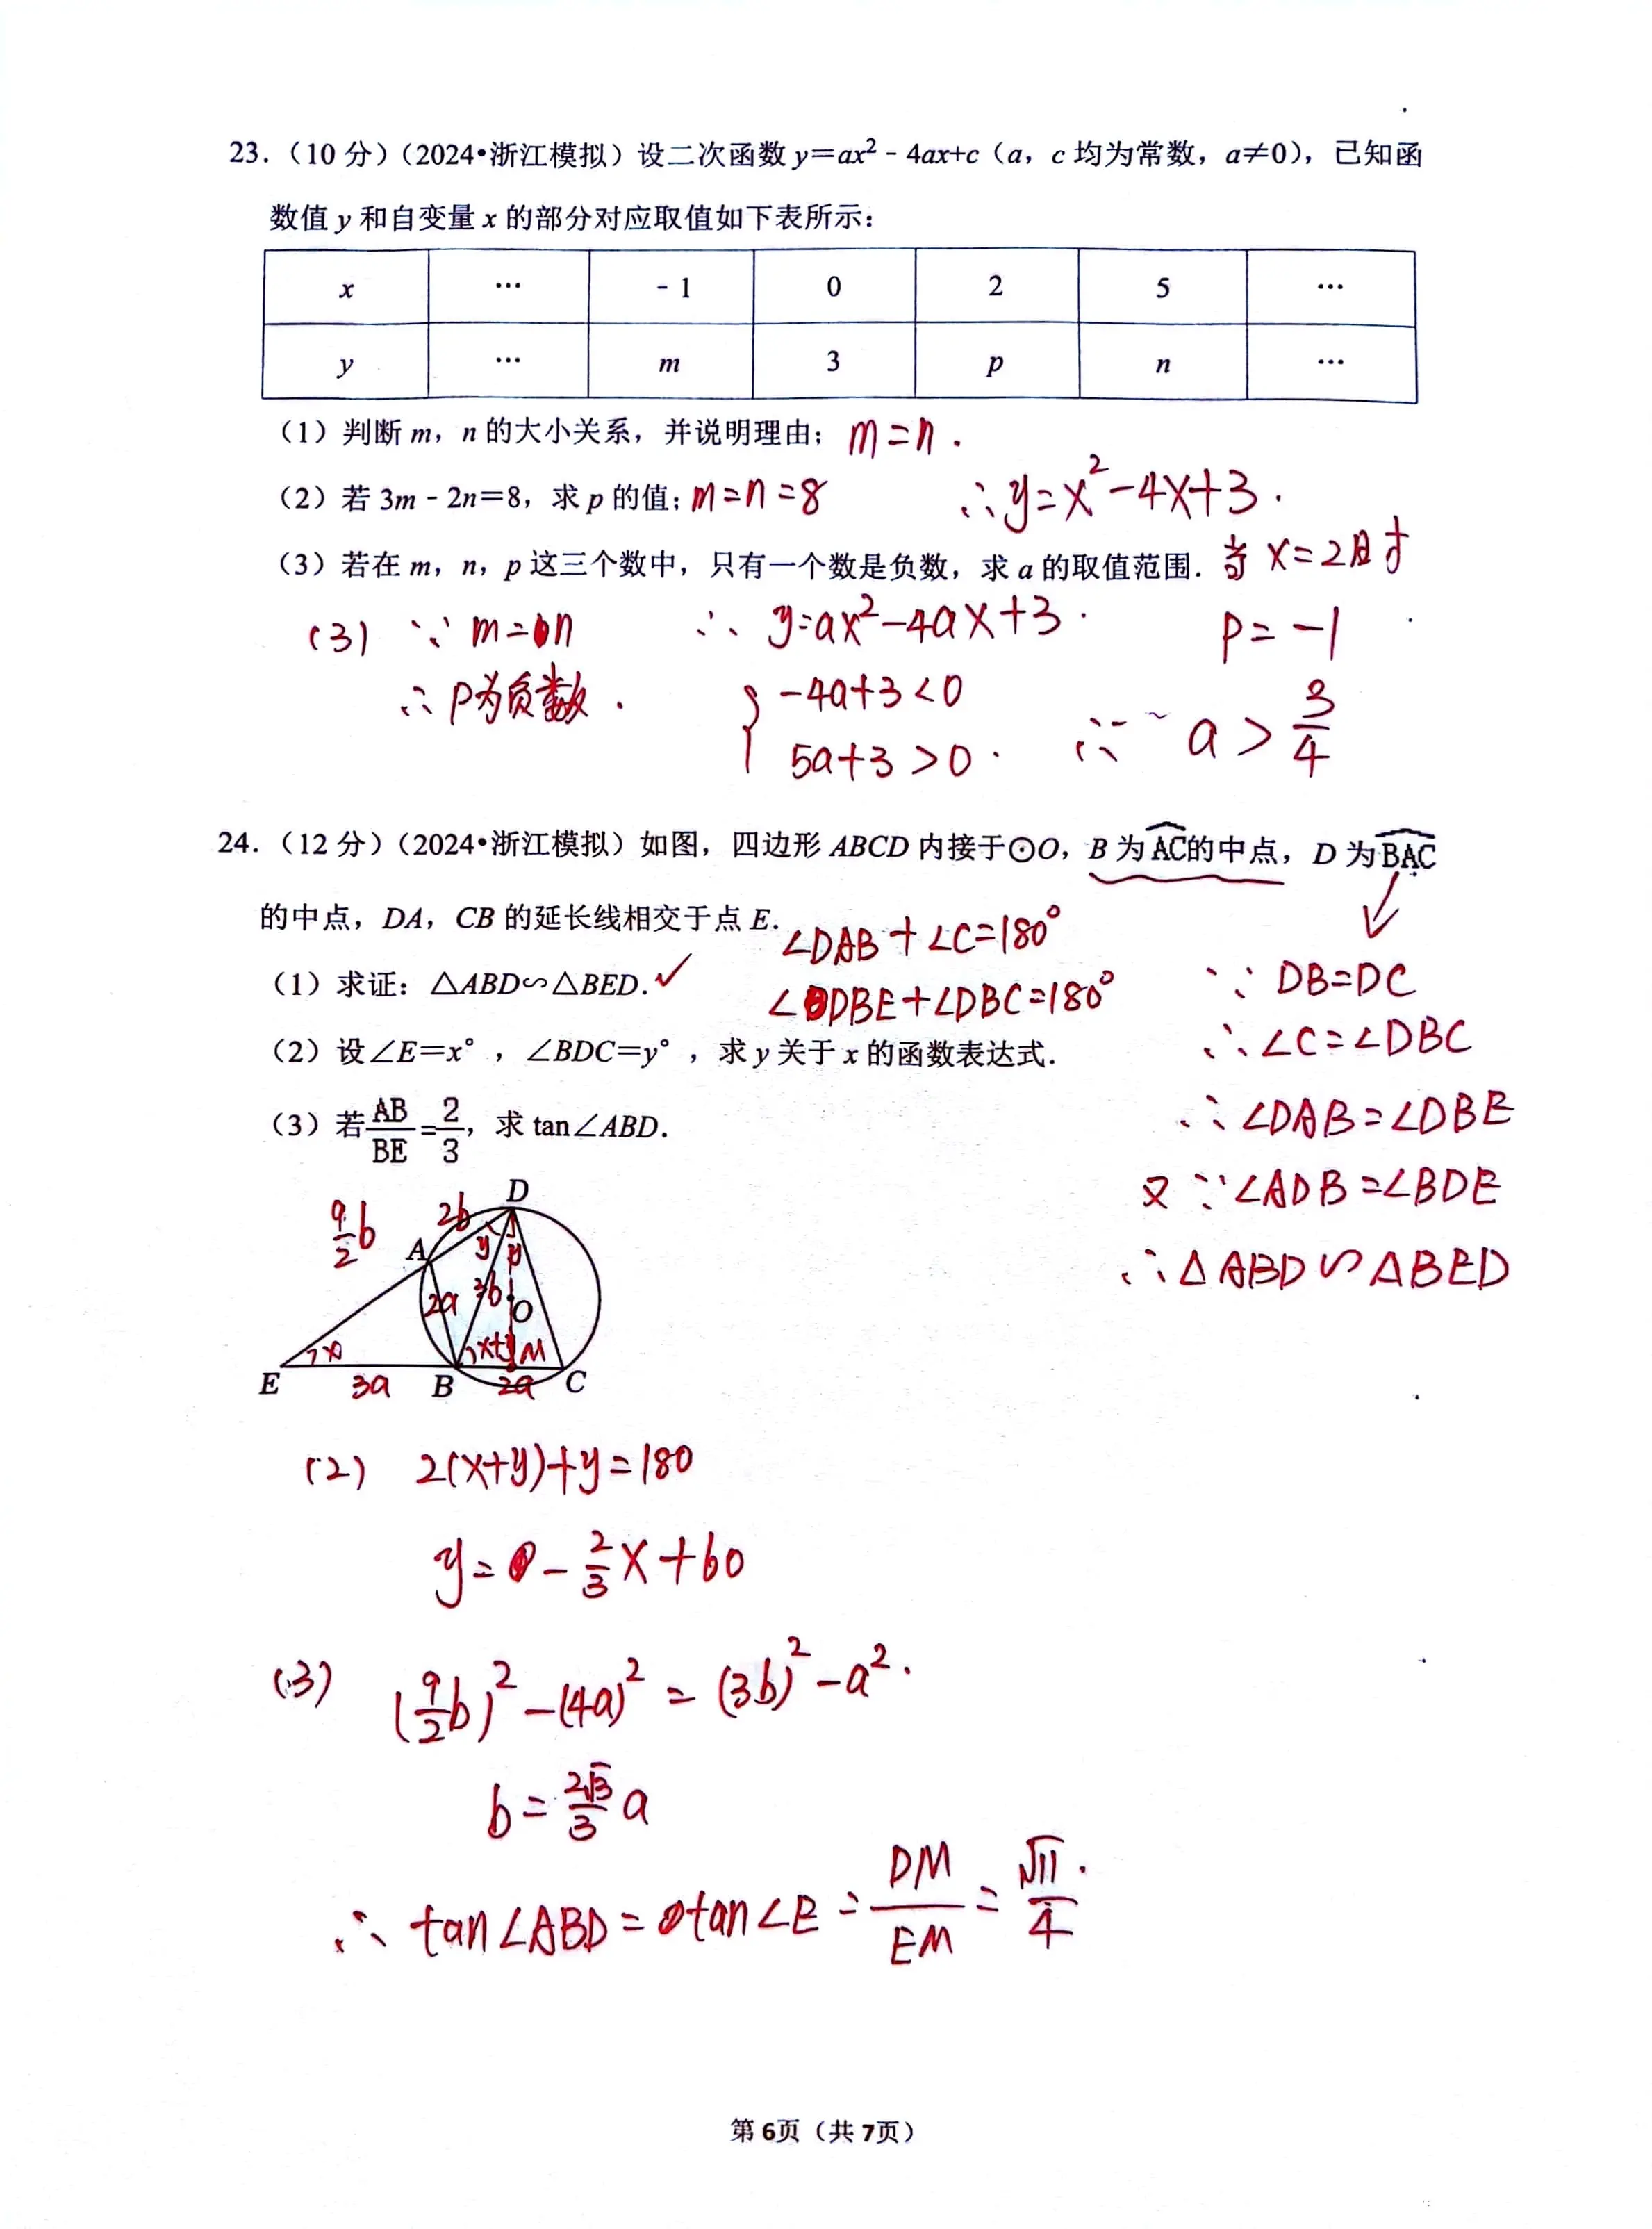 23.（10 分）（2024•浙江模拟）设二次函数 y＝ax²﹣4ax+c（a，c 均为常数，a≠0），已知函
数值 y 和自变量 x 的部分对应取值如下表所示：
x … ﹣1 0 2 5 …
y … m 3 p n …
（1）判断 m，n 的大小关系，并说明理由； m=n.
（2）若 3m﹣2n＝8，求 p 的值； m=n=8 ∴y=x²-4x+3.
（3）若在 m，n，p 这三个数中，只有一个数是负数，求 a 的取值范围. 当 x=2时
(3) ∵ m=n ∴ y=ax²-4ax+3. p=-1
∴ p为负数. { -4a+3<0
5a+3>0. ∴ a>3/4
24.（12 分）（2024•浙江模拟）如图，四边形 ABCD 内接于⊙O，B 为AC的中点，D 为BAC
的中点，DA，CB 的延长线相交于点 E.
∠DAB+∠C=180°
（1）求证：△ABD∽△BED. ✓ ∵ DB=DC
∠DBE+∠DBC=180°
（2）设∠E＝x°，∠BDC＝y°，求 y 关于 x 的函数表达式. ∴∠C=∠DBC
（3）若AB/BE=2/3，求 tan∠ABD. ∴∠DAB=∠DBE
又∵∠ADB=∠BDE
∴△ABD∽△BED
D
9/2b 2b
A y y
2a 3b O
x x+y M
E 3a B 2a C
(2) 2(x+y)+y=180
y=-2/3x+60
(3) (9/2b)²-(4a)²=(3b)²-a².
b=2√3/3a
∴ tan∠ABD=tan∠E=DM/EM=√11/4.
第 6页（共 7页）